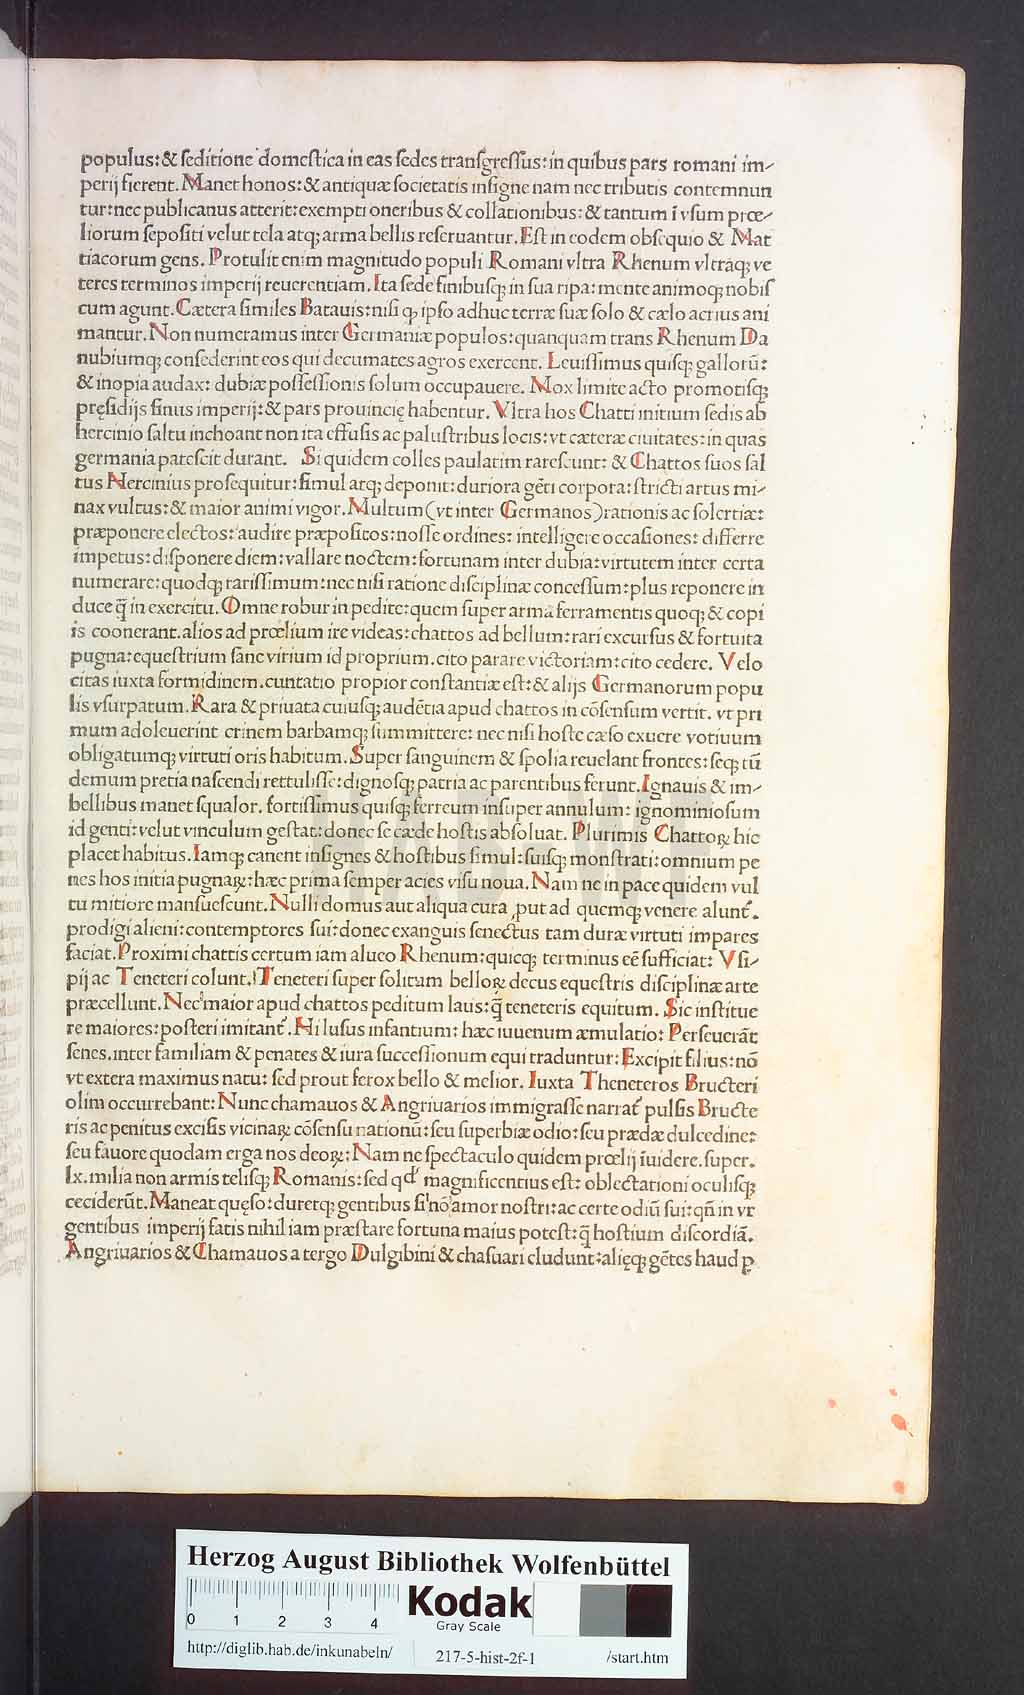 populus: & seditione domestica in eas sedes transgressus: in quibus pars romani im-
perij fierent. Manet honos: & antiquæ societatis insigne nam nec tributis contemnun
tur: nec publicanus atterit: exempti oneribus & collationibus: & tantum ī vsum prœ-
liorum sepositi velut tela atqꝫ arma bellis reseruantur. Est in eodem obsequio & Mat
tiacorum gens. Protulit enim magnitudo populi Romani vltra Rhenum vltraqꝫ ve
teres terminos imperij reuerentiam. Ita sede finibusqꝫ in sua ripa: mente animoqꝫ nobis
cum agunt. Cætera similes Batauis: nisi qꝫ ipso adhuc terræ suæ solo & cælo acrius ani
mantur. Non numeramus inter Germaniæ populos: quanquam trans Rhenum Da
nubiumqꝫ consederint eos qui decumates agros exercent. Leuissimus quisqꝫ gallorū:
& inopia audax: dubiæ possessionis solum occupauere. Mox limite acto promotisqꝫ
pręsidijs sinus imperij: & pars prouincię habentur. Vltra hos Chatti initium sedis ab
hercinio saltu inchoant non ita effusis ac palustribus locis: vt cæteræ ciuitates: in quas
germania patescit durant. Si quidem colles paulatim rarescunt: & Chattos suos sal
tus Nercinius prosequitur: simul atqꝫ deponit: duriora gēti corpora: stricti artus mi-
nax vultus: & maior animi vigor. Multum (vt inter Germanos) rationis ac solertiæ:
præponere electos: audire præpositos: nosse ordines: intelligere occasiones: differre
impetus: disponere diem: vallare noctem: fortunam inter dubia: virtutem inter certa
numerare: quodqꝫ rarissimum: nec nisi ratione disciplinæ concessum: plus reponere in
duce q̄ in exercitu. Omne robur in pedite: quem super arma ferramentis quoqꝫ & copi
is coonerant. alios ad prœlium ire videas: chattos ad bellum: rari excursus & fortuita
pugna: equestrium sane virium id proprium. cito parare victoriam: cito cedere. Velo
citas iuxta formidinem. cuntatio propior constantiæ est: & alijs Germanorum popu
lis vsurpatum. Rara & priuata cuiusqꝫ audētia apud chattos in cōsensum vertit. vt pri
mum adoleuerint crinem barbamqꝫ summittere: nec nisi hoste cæso exuere votiuum
obligatumqꝫ virtuti oris habitum. Super sanguinem & spolia reuelant frontes: seqꝫ tū
demum pretia nascendi rettulisse: dignosqꝫ patria ac parentibus ferunt. Ignauis & im-
bellibus manet squalor. fortissimus quisqꝫ ferreum insuper annulum: ignominiosum
id genti: velut vinculum gestat: donec se cæde hostis absoluat. Plurimis Chattoꝝ hic
placet habitus. Iamqꝫ canent insignes & hostibus simul: suisqꝫ monstrati: omnium pe
nes hos initia pugnaꝝ: hæc prima semper acies visu noua. Nam ne in pace quidem vul
tu mitiore mansuescunt. Nulli domus aut aliqua cura ꝓut ad quemqꝫ venere alunt᷑.
prodigi alieni: contemptores sui: donec exanguis senectus tam duræ virtuti impares
faciat. Proximi chattis certum iam alueo Rhenum: quicqꝫ terminus eē sufficiat: Vsi-
pij ac Teneteri colunt. Teneteri super solitum belloꝝ decus equestris disciplinæ arte
præcellunt. Nec maior apud chattos peditum laus: q̄ teneteris equitum. Sic institue
re maiores: posteri imitant᷑. Ni lusus infantium: hæc iuuenum æmulatio: Perseuerāt
senes. inter familiam & penates & iura successionum equi traduntur: Excipit filius: nō
vt extera maximus natu: sed prout ferox bello & melior. Iuxta Theneteros Bructeri
olim occurrebant: Nunc chamauos & Angriuarios immigrasse narrat᷑ pulsis Bructe
ris ac penitus excisis vicinaꝝ cōsensu nationū: seu superbiæ odio: seu prædæ dulcedine:
seu fauore quodam erga nos deoꝝ: Nam ne spectaculo quidem prœlij īuidere. super.
lx. milia non armis telisqꝫ Romanis: sed qd᷑ magnificentius est: oblectationi oculisqꝫ
ceciderūt. Maneat quęso: duretqꝫ gentibus si nō amor nostri: ac certe odiū sui: qn̄ in vr
gentibus imperij fatis nihil iam præstare fortuna maius potest: q̄ hostium discordiā.
Angriuarios & Chamauos a tergo Dulgibini & chasuari cludunt: alięqꝫ gētes haud ꝑ
HAB WF
Herzog August Bibliothek Wolfenbüttel
0 1 2 3 4
Kodak
Gray Scale
http://diglib.hab.de/inkunabeln/ 217-5-hist-2f-1 /start.htm